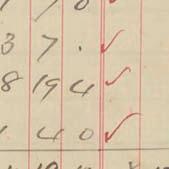 3 7 . ✓
8 19 4 ✓
4 0 ✓